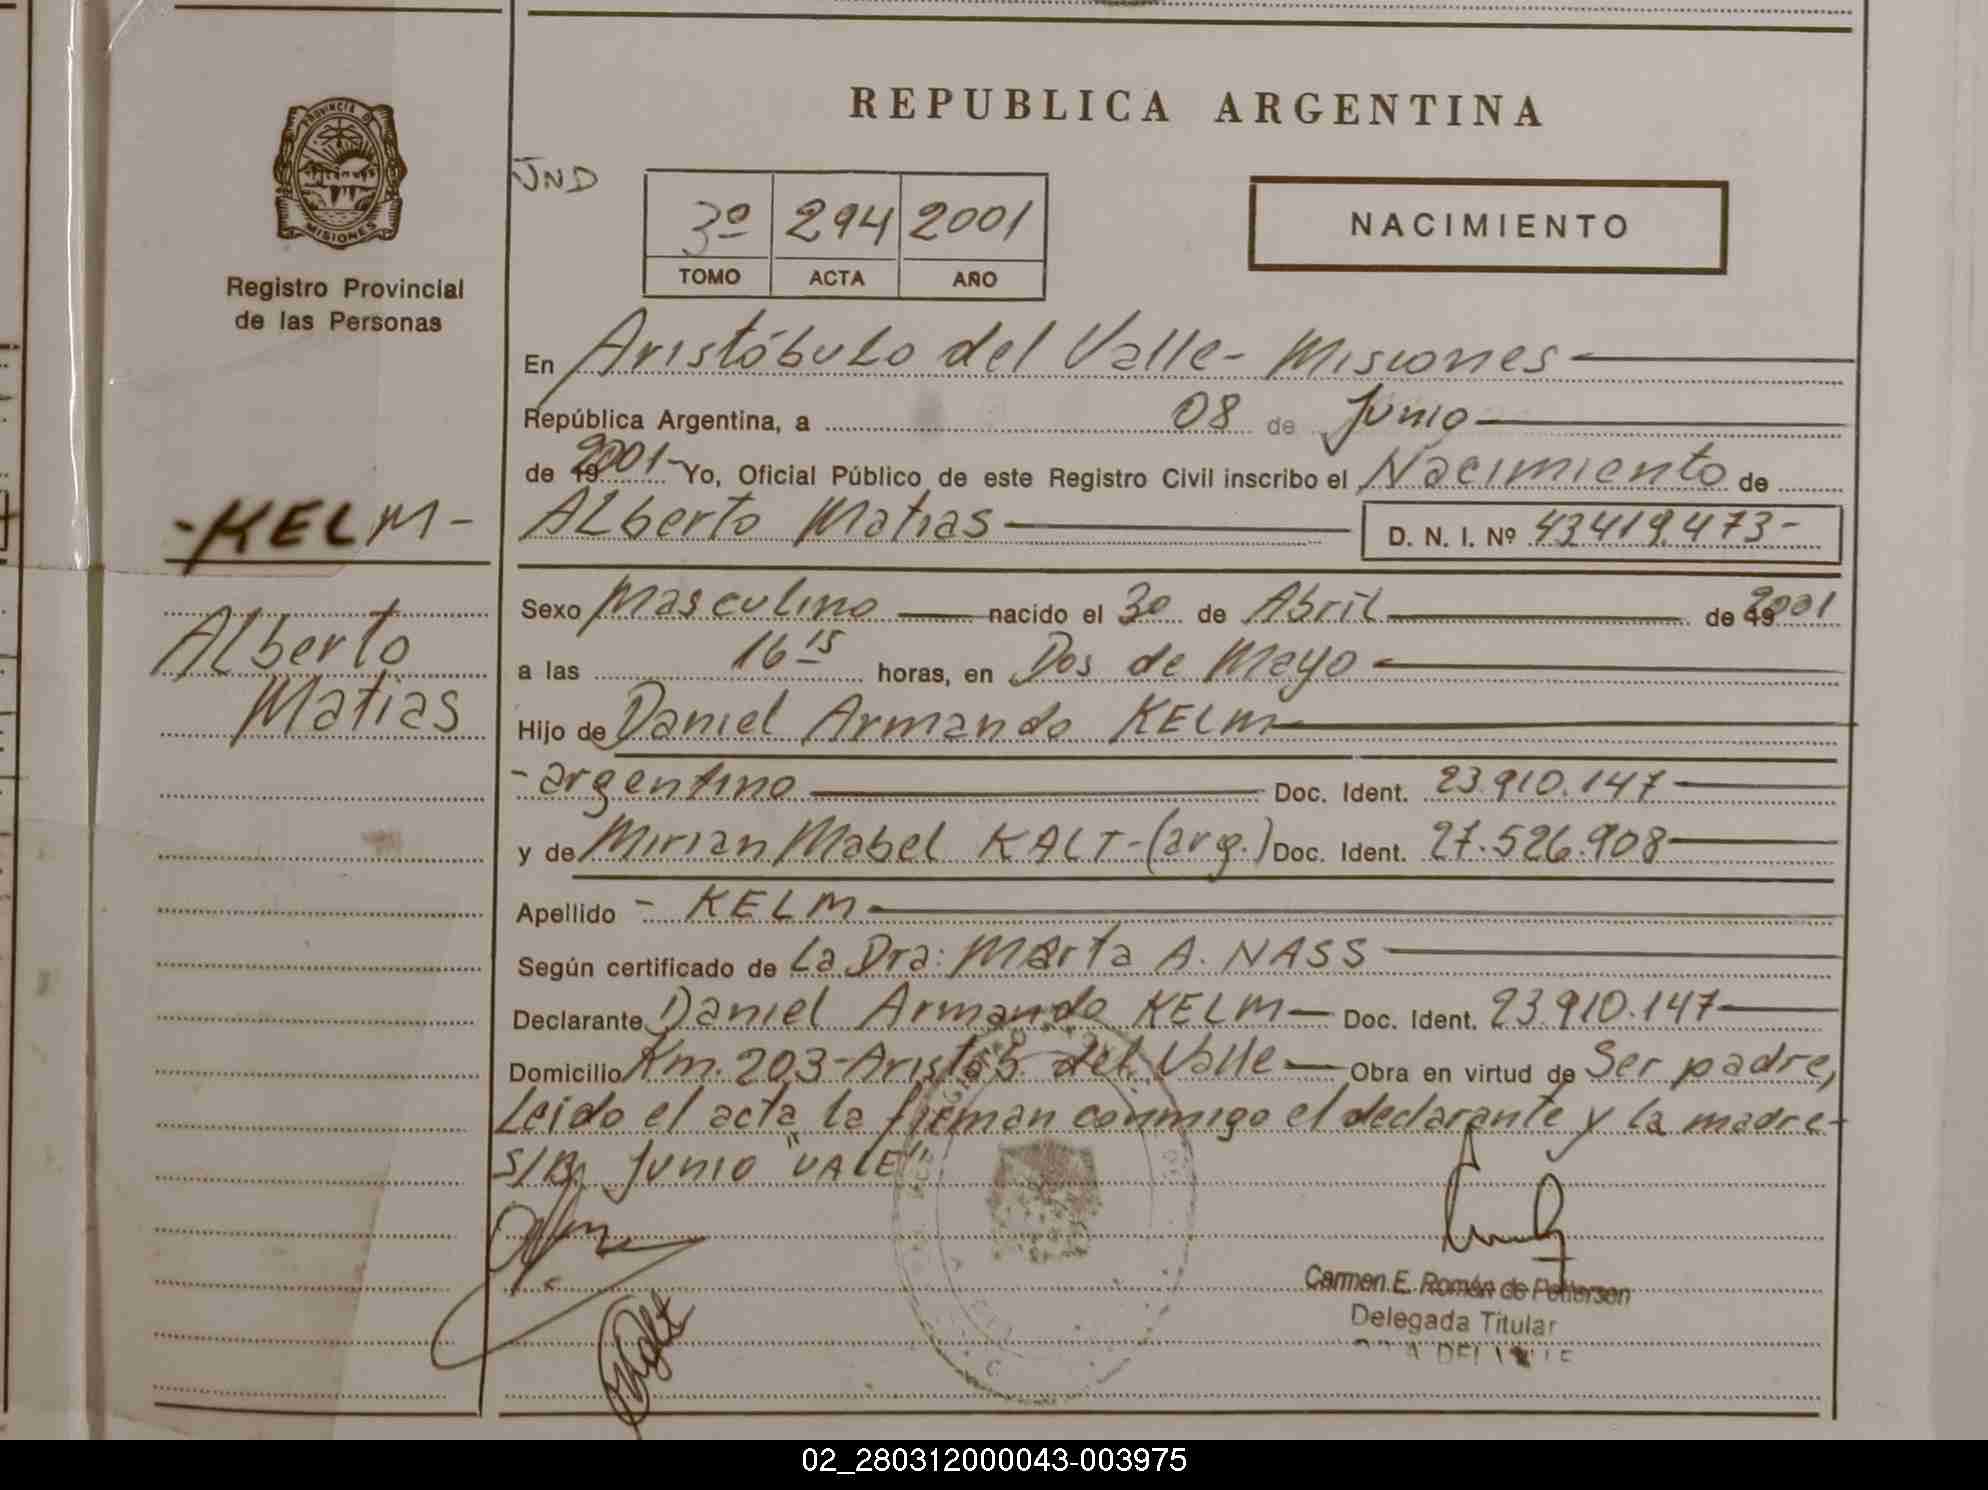 REPUBLICA ARGENTINA
PROVINCIA DE
MISIONES
Registro Provincial
de las Personas
JND
3º 294 2001
TOMO ACTA AÑO
NACIMIENTO
En Aristóbulo del Valle - Misiones
República Argentina, a 08 de Junio
de 19 2001 - Yo, Oficial Público de este Registro Civil inscribo el Nacimiento de
-KELM-
Alberto Matias D. N. I. Nº 43419.473-
Alberto
Matias
Sexo Masculino nacido el 30 de Abril de 19 2001
a las 16 15 horas, en Dos de Mayo
Hijo de Daniel Armando KELM
- argentino Doc. Ident. 23.910.147
y de Mirian Mabel KALT - (arg.) Doc. Ident. 27.526.908
Apellido - KELM
Según certificado de La Dra: Marta A. NASS
Declarante Daniel Armando KELM Doc. Ident. 23.910.147
Domicilio Km. 203 - Aristób. del Valle Obra en virtud de Ser padre,
Leido el acta la firman conmigo el declarante y la madre-
S/B. Junio "VALE"-
Carmen E. Román de Pettersen
Delegada Titular
02_280312000043-003975